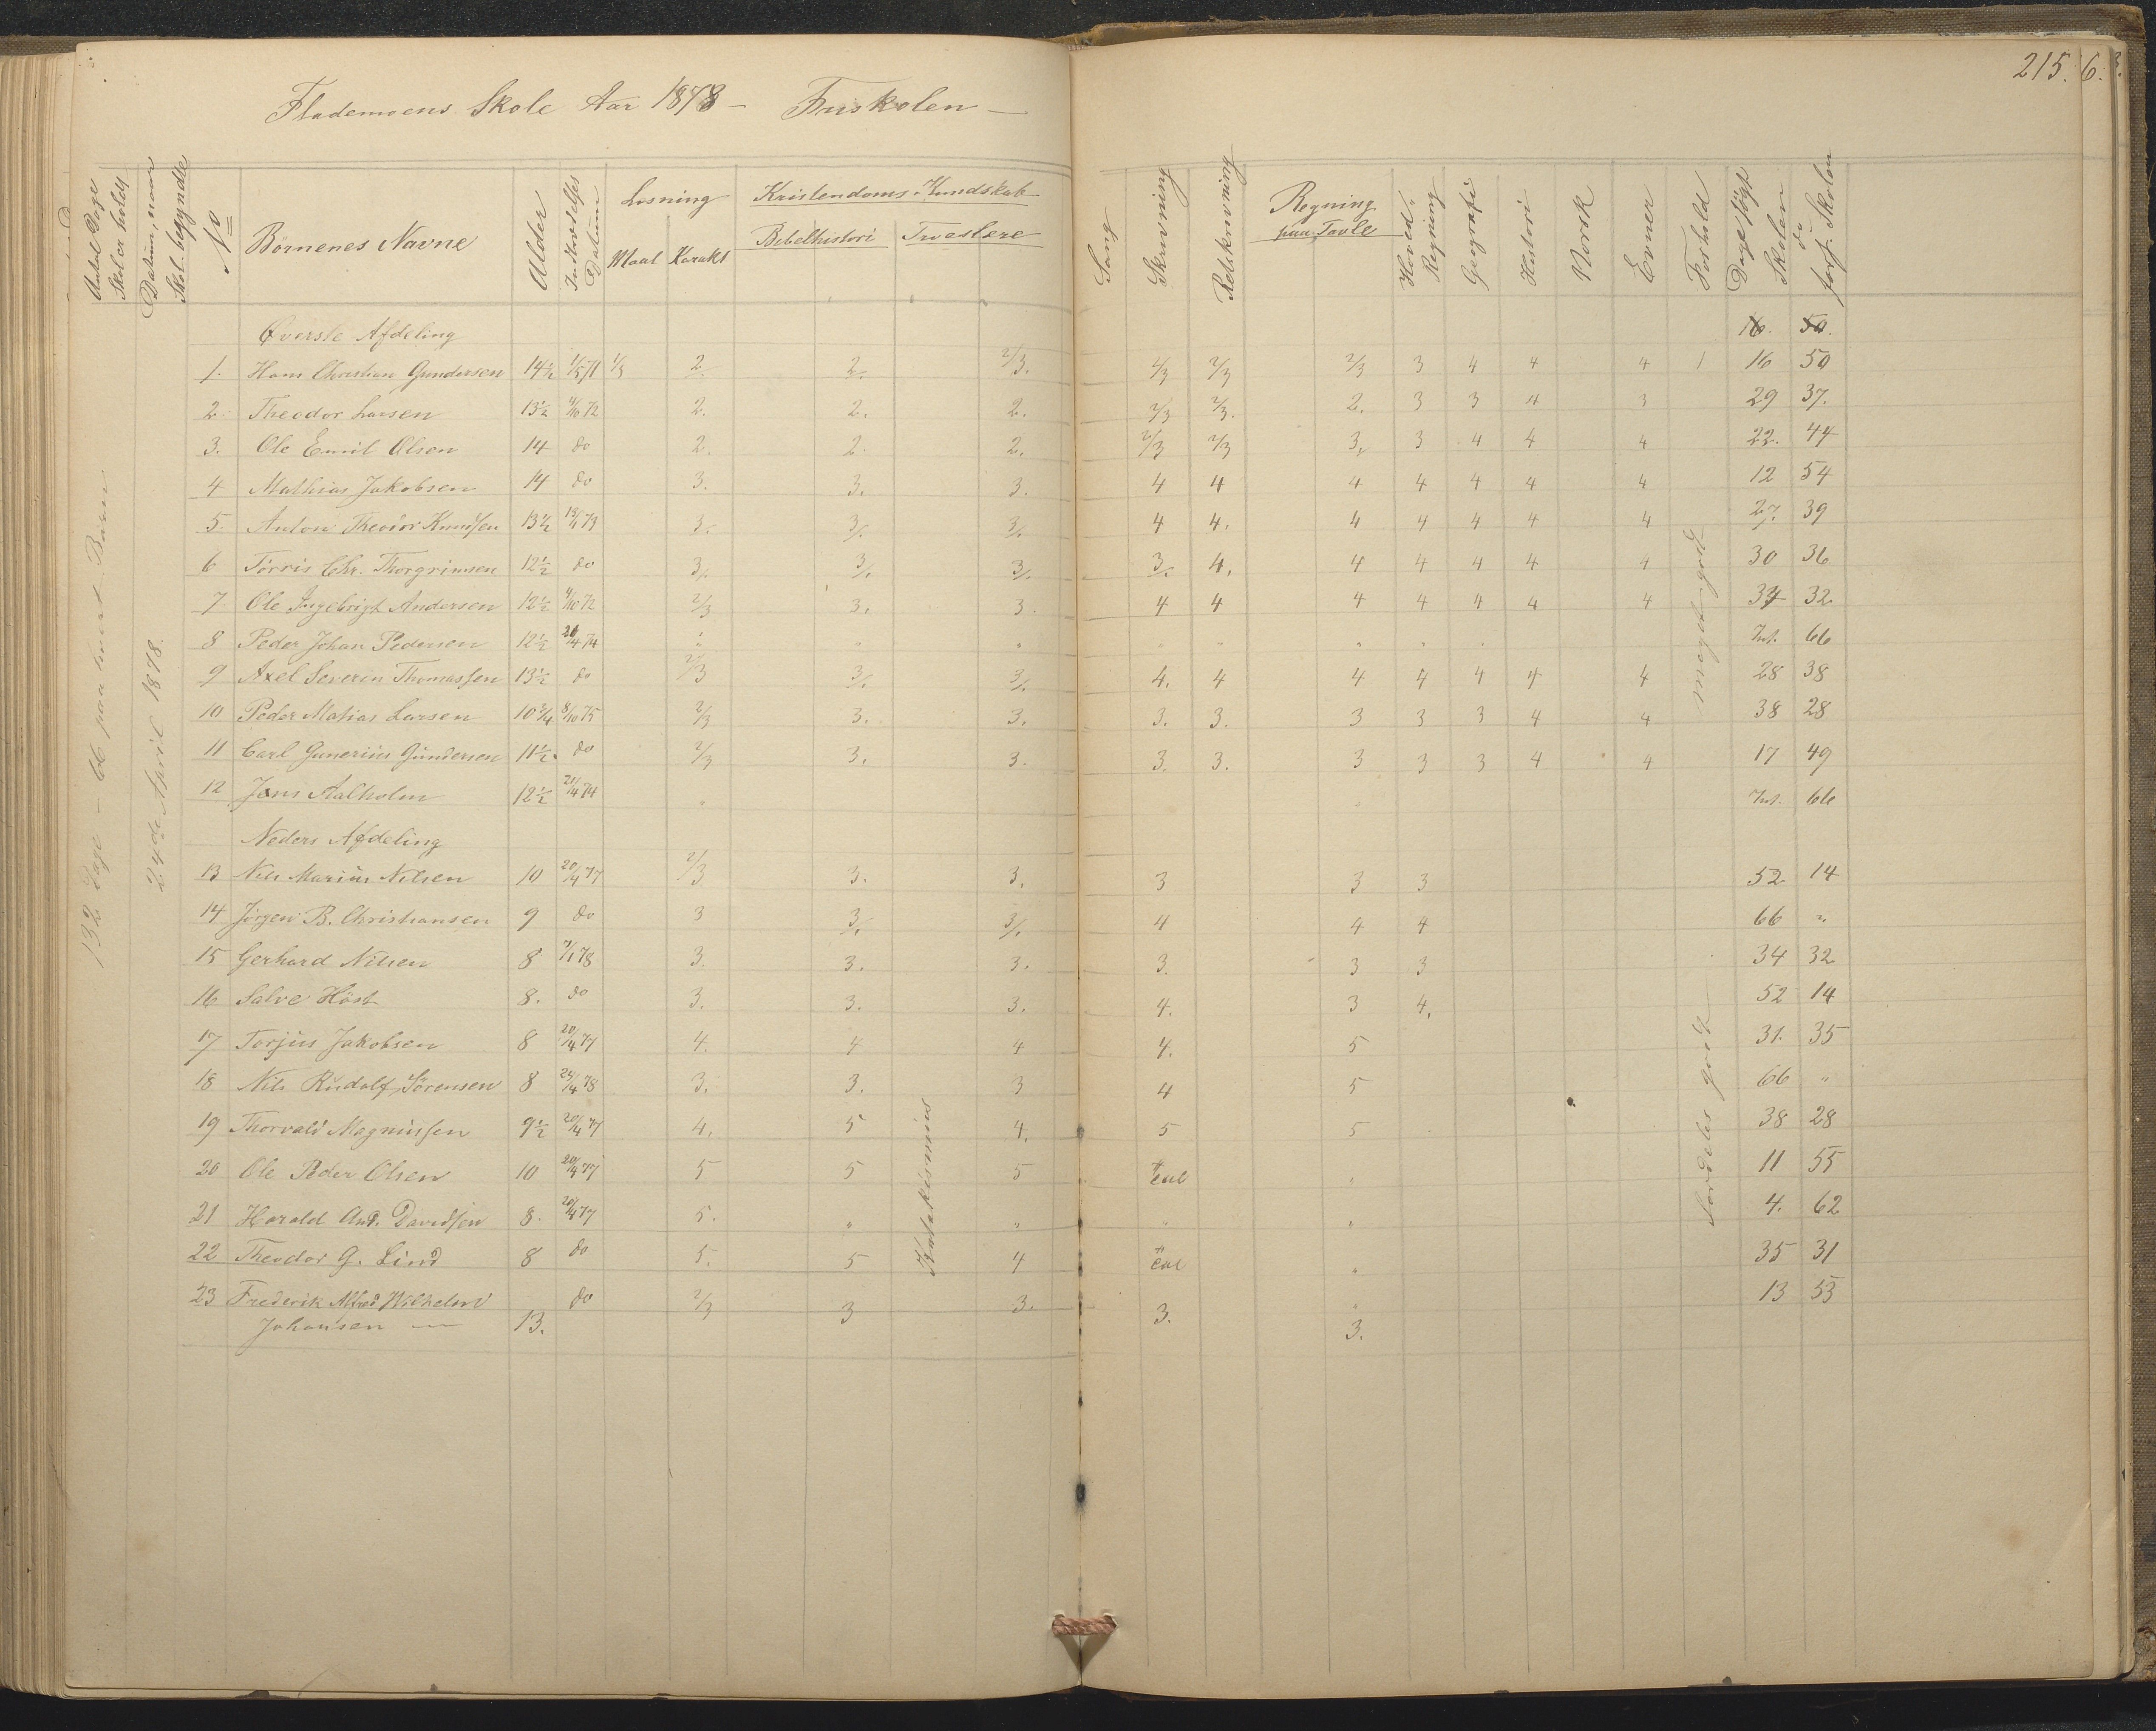 Flademoens Skole Aar 1878 – Friskolen –
215.
6.
Antal Dage Skol er holdt
Datum, naar Skol. begyndte
No
Börnenes Navne
Alder
Indtrædelses Datum
Læsning
Maal Karakt
Kristendoms-Kundskab
Bibelhistori Troeslære
Sang
Skrivning
Retskrivning
Regning paa Tavle
Hoved-Regning
Geografi
Histori
Norsk
Evner
Forhold
Dage søgt Skolen
do fors. Skolen
132 Dage 66 paa hvert Barn
24de April 1878.
Øverste Afdeling 16. 50.
1. Hans Christian Gundersen 14½ 1/5 71 1/3 2 2. 2/3. 2/3 2/3 2/3 3 4 4 4 1 16 50
2. Theodor Larsen 13½ 4/10 72 2. 2. 2. 2/3 2/3. 2. 3 3 4 3 29 37.
3. Ole Emil Olsen 14 do 2. 2. 2. 2/3 2/3 3. 3 4 4 4 22. 44
4 Mathias Jakobsen 14 do 3. 3. 3. 4 4 4 4 4 4 4 12 54
5. Anton Theodor Knudsen 13½ 13/1 73 3/. 3/. 3/. 4 4. 4 4 4 4 4 27. 39
6 Törris Chr. Thorgrimsen 12½ do 3/. 3/. 3/. 3/. 4. 4 4 4 4 4 30 36
7. Ole Ingebrigt Andersen 12½ 4/10 72 2/3 3. 3. 4 4 4 4 4 4 4 34 32
8 Peder Johan Pedersen 12½ 20/4 74 " " " " " " " " Int. 66
9 Axel Severin Thomassen 13½ do 2/3 3/. 3/. 4. 4 4 4 4 4 4 28 38
10 Peder Matias Larsen 10¾ 8/10 75 2/3 3. 3. 3. 3. 3 3 3 4 4 38 28
11 Carl Gunerius Gundersen 11½. do 2/3 3. 3. 3. 3. 3 3 3 4 4 17 49
12 Jens Aalholm 12½ 21/4 74 " " Int. 66
meget godt
Neders Afdeling
13 Nils Marius Nilsen 10 20/4 77 2/3 3. 3. 3 3 3 52 14
14 Jörgen B. Christiansen 9 do 3 3/. 3/. 4 4 4 66 "
15 Gerhard Nilsen 8 7/1 78 3. 3. 3. 3. 3 3 34 32
16 Salve Höst 8. do 3. 3. 3. 4. 3 4. 52 14
17 Torjus Jakobsen 8 20/4 77 4. 4 4 4. 5 31. 35
18 Nils Rudolf Sörensen 8 24/4 78 3. 3. 3 4 5 66 "
19 Thorvald Magnussen 9½ 20/4 77 4. 5 4. 5 5 38 28
20 Ole Peder Olsen 10 20/4 77 5 5 5 " 11 55
21 Harald And. Davidsen 8. 20/4 77 5. " " " " 4. 62
22 Theodor G. Lind 8 do 5. 5 4 " 35 31
23 Frederik Alfred Wilhelm do 2/3 3 3. 3. " 13 53
Johansen — 13. 3.
Katekismus
Særdeles godt